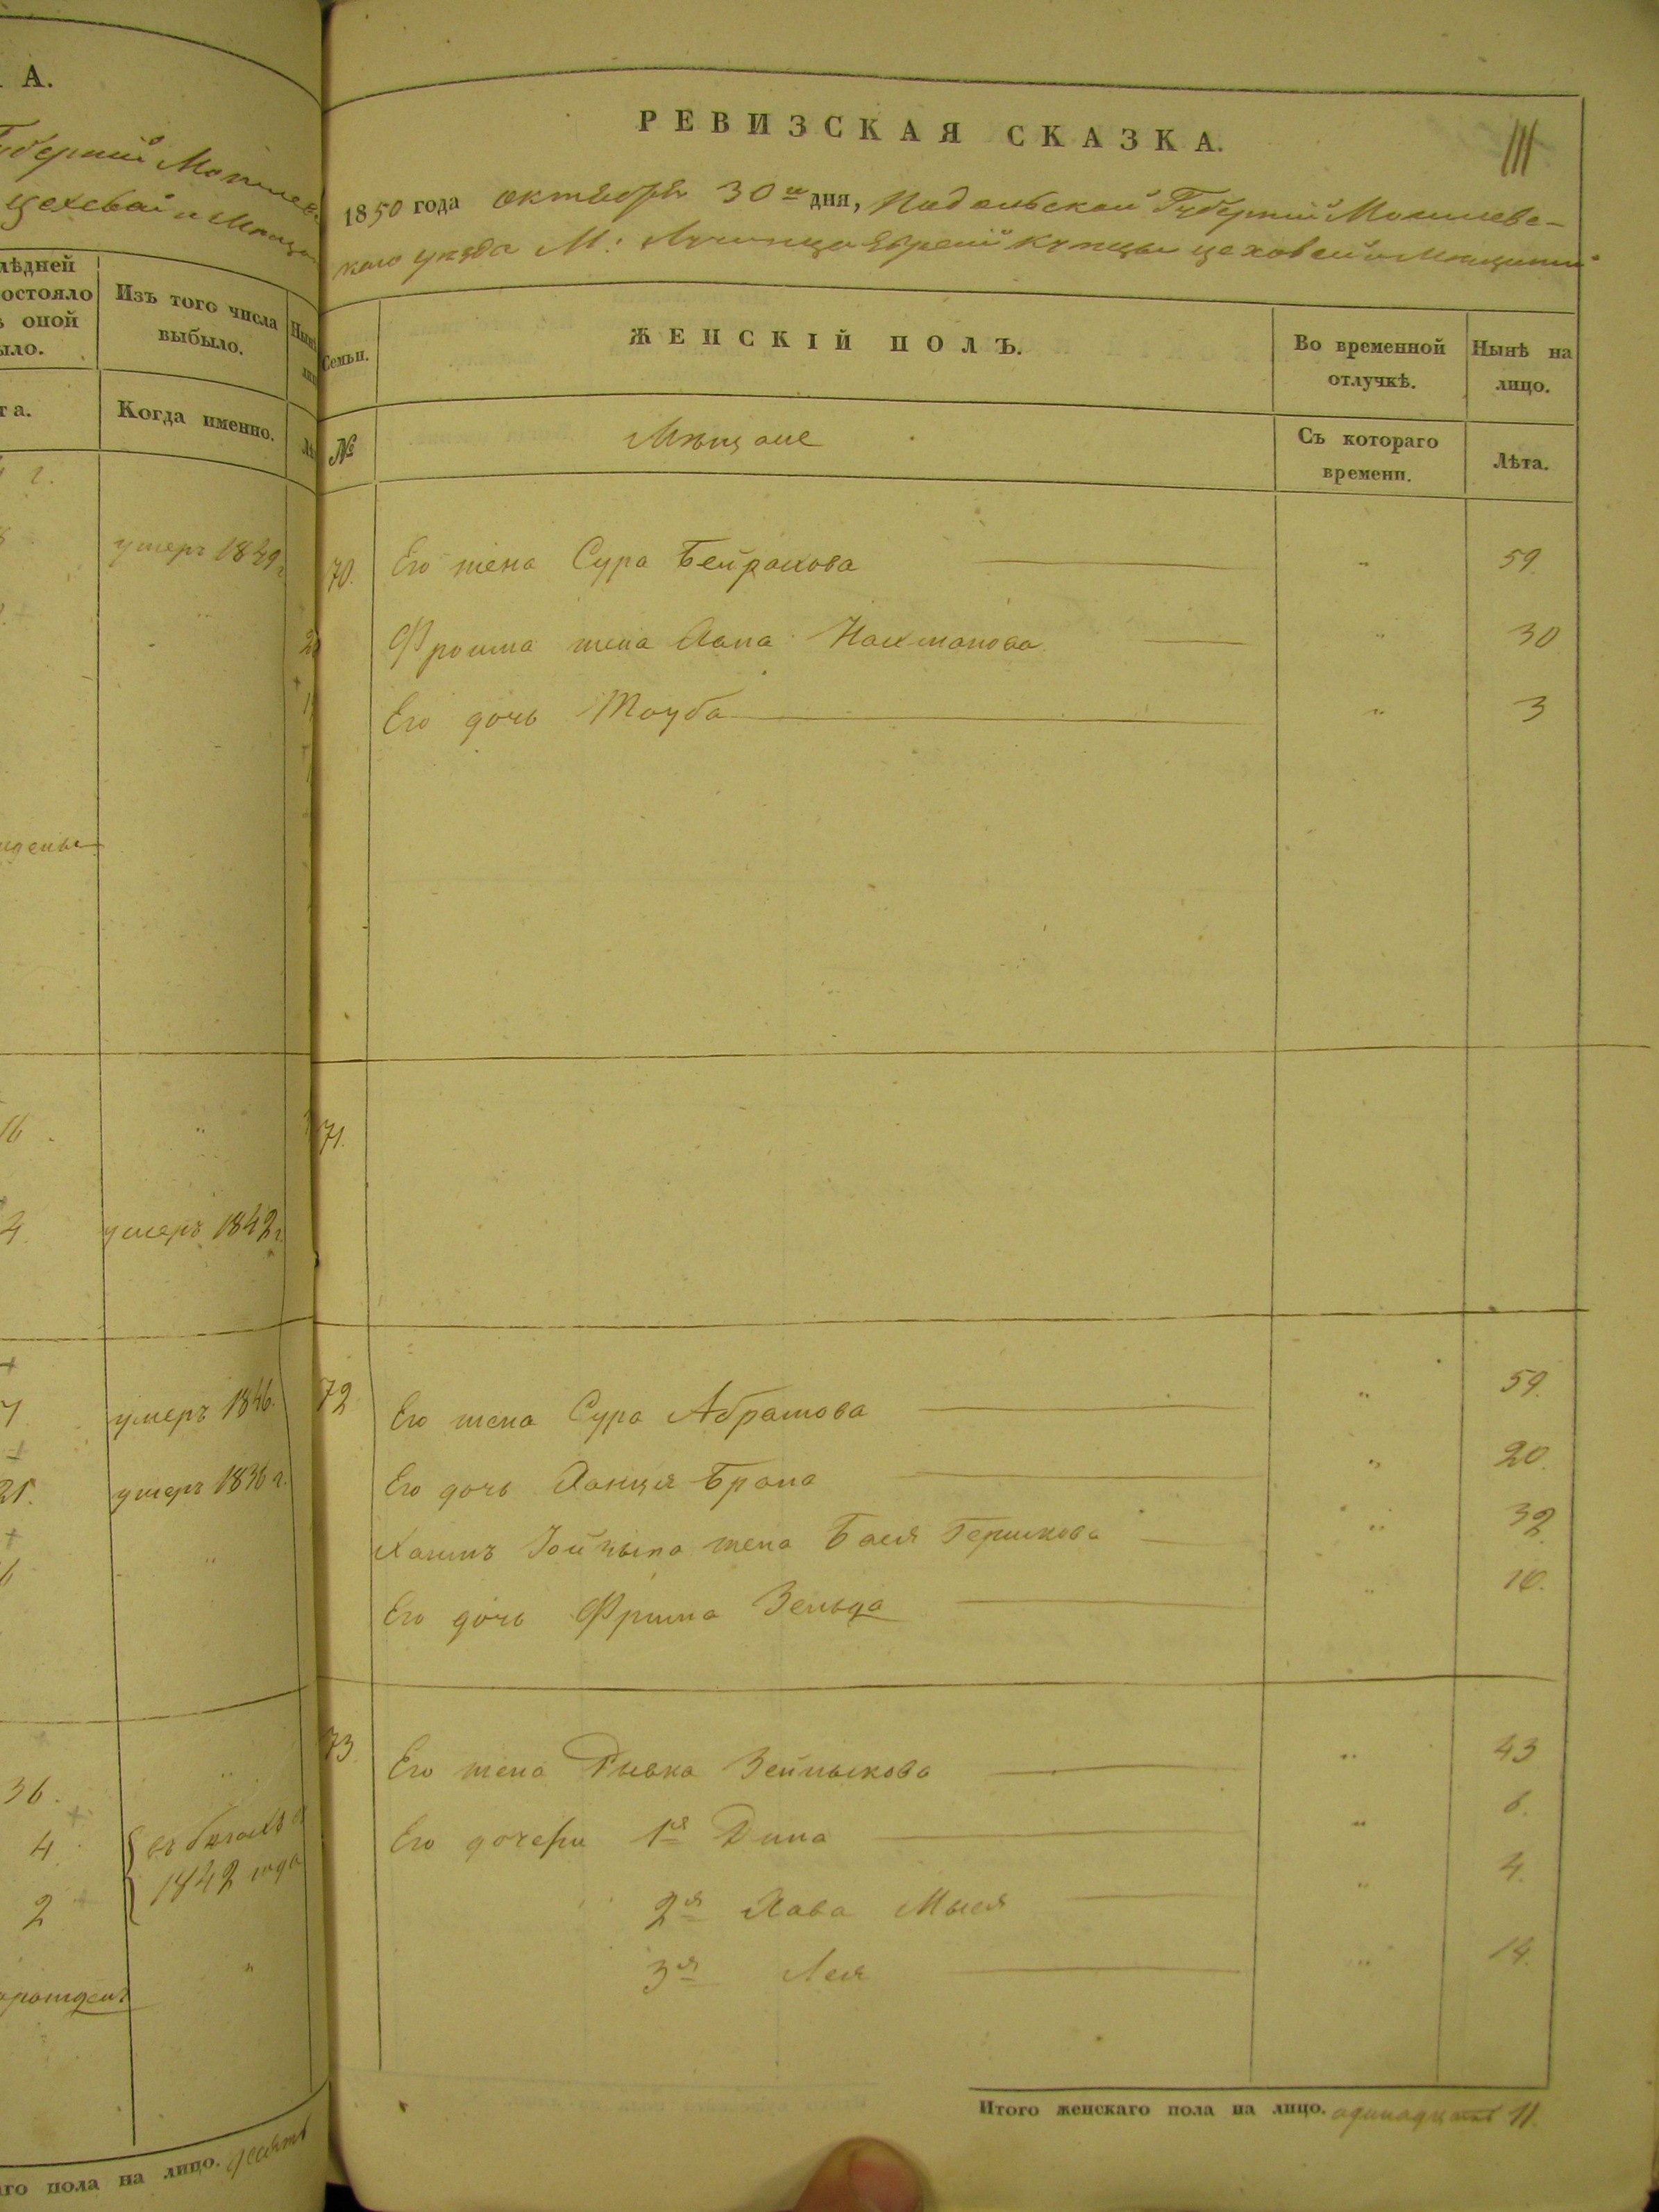 А.
Губерніи Могилев
цеховаи и Мещан
лѣдней
остояло
ъ оной
ыло.
Изъ того числа
выбыло.
Нынѣ
та.
Когда именно.
умеръ 1849 г
16
4.
умеръ 1842 г.
умеръ 1846.
21.
умеръ 1836 г.
36.
4
2
въ бегахъ съ
1842 года
аго пола на лицо. десять
РЕВИЗСКАЯ СКАЗКА.
111
1850 года октября 30 го дня, Подольской Губерніи Могилевс-
каго уѣзда М: Лучинца Евреій купцы цеховеи и Мещани
Семьи.
ЖЕНСКІЙ ПОЛЪ.
Во временной
отлучкѣ.
Нынѣ на
лицо.
№
Мѣщане
Съ котораго
времени.
Лѣта.
70. Его жена Сура Бейрахова " 59.
Фроима жена Хана Нахманова " 30
Его дочь Тауба " 3
71.
72 Его жена Сура Абрамова " 59.
Его дочь Ханця Брана " 20.
Хаимъ Зойныла жена Бася Гершкова " 32
Его дочь Фрима Зельда " 16.
73 Его жена Рывка Зейлыкова " 43
Его дочери 1я Дина " 6.
2я Хава Мыся " 4.
3я Лея " 14.
Итого женскаго пола на лицо. одинадцать 11.